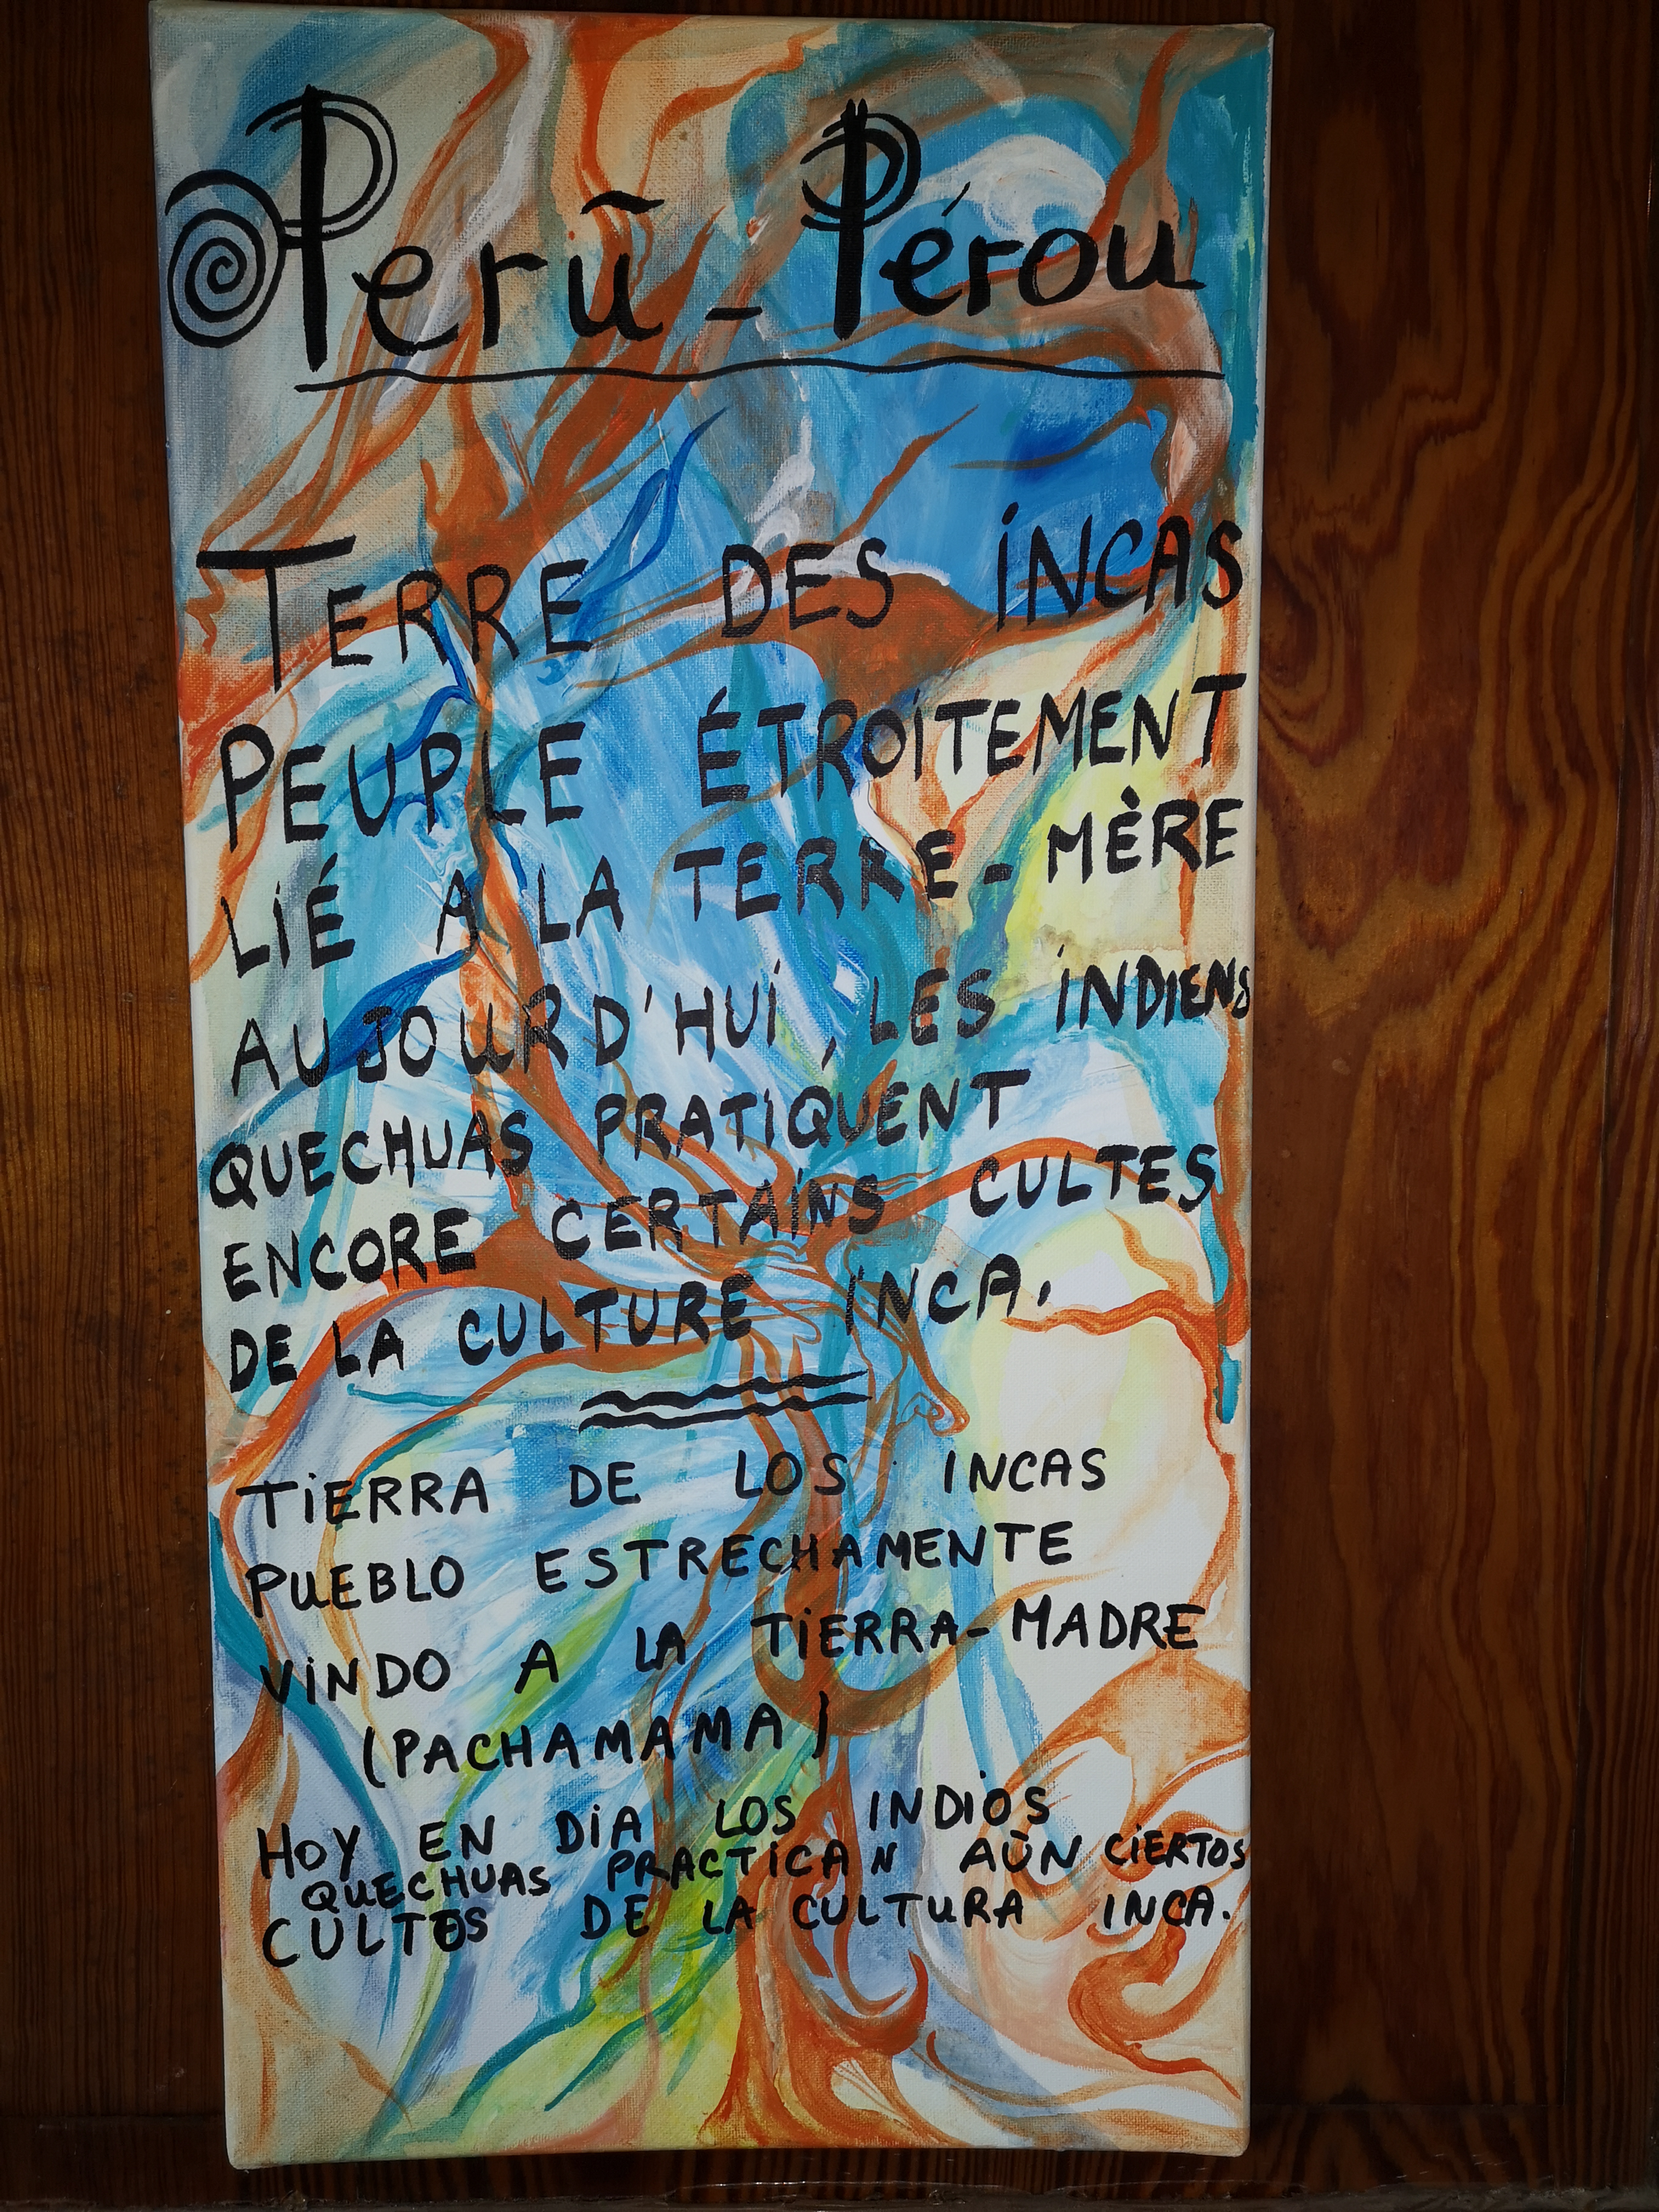 Perũ - Pérou
TERRE DES INCAS
PEUPLE ÉTROITEMENT
LIÉ A LA TERRE-MÈRE
AUJOURD'HUI, LES INDIENS
QUECHUAS PRATIQUENT
ENCORE CERTAINS CULTES
DE LA CULTURE INCA.
TIERRA DE LOS INCAS
PUEBLO ESTRECHAMENTE
VINDO A LA TIERRA-MADRE
(PACHAMAMA)
HOY EN DIA LOS INDIOS
QUECHUAS PRACTICAN AÙN CIERTOS
CULTOS DE LA CULTURA INCA.